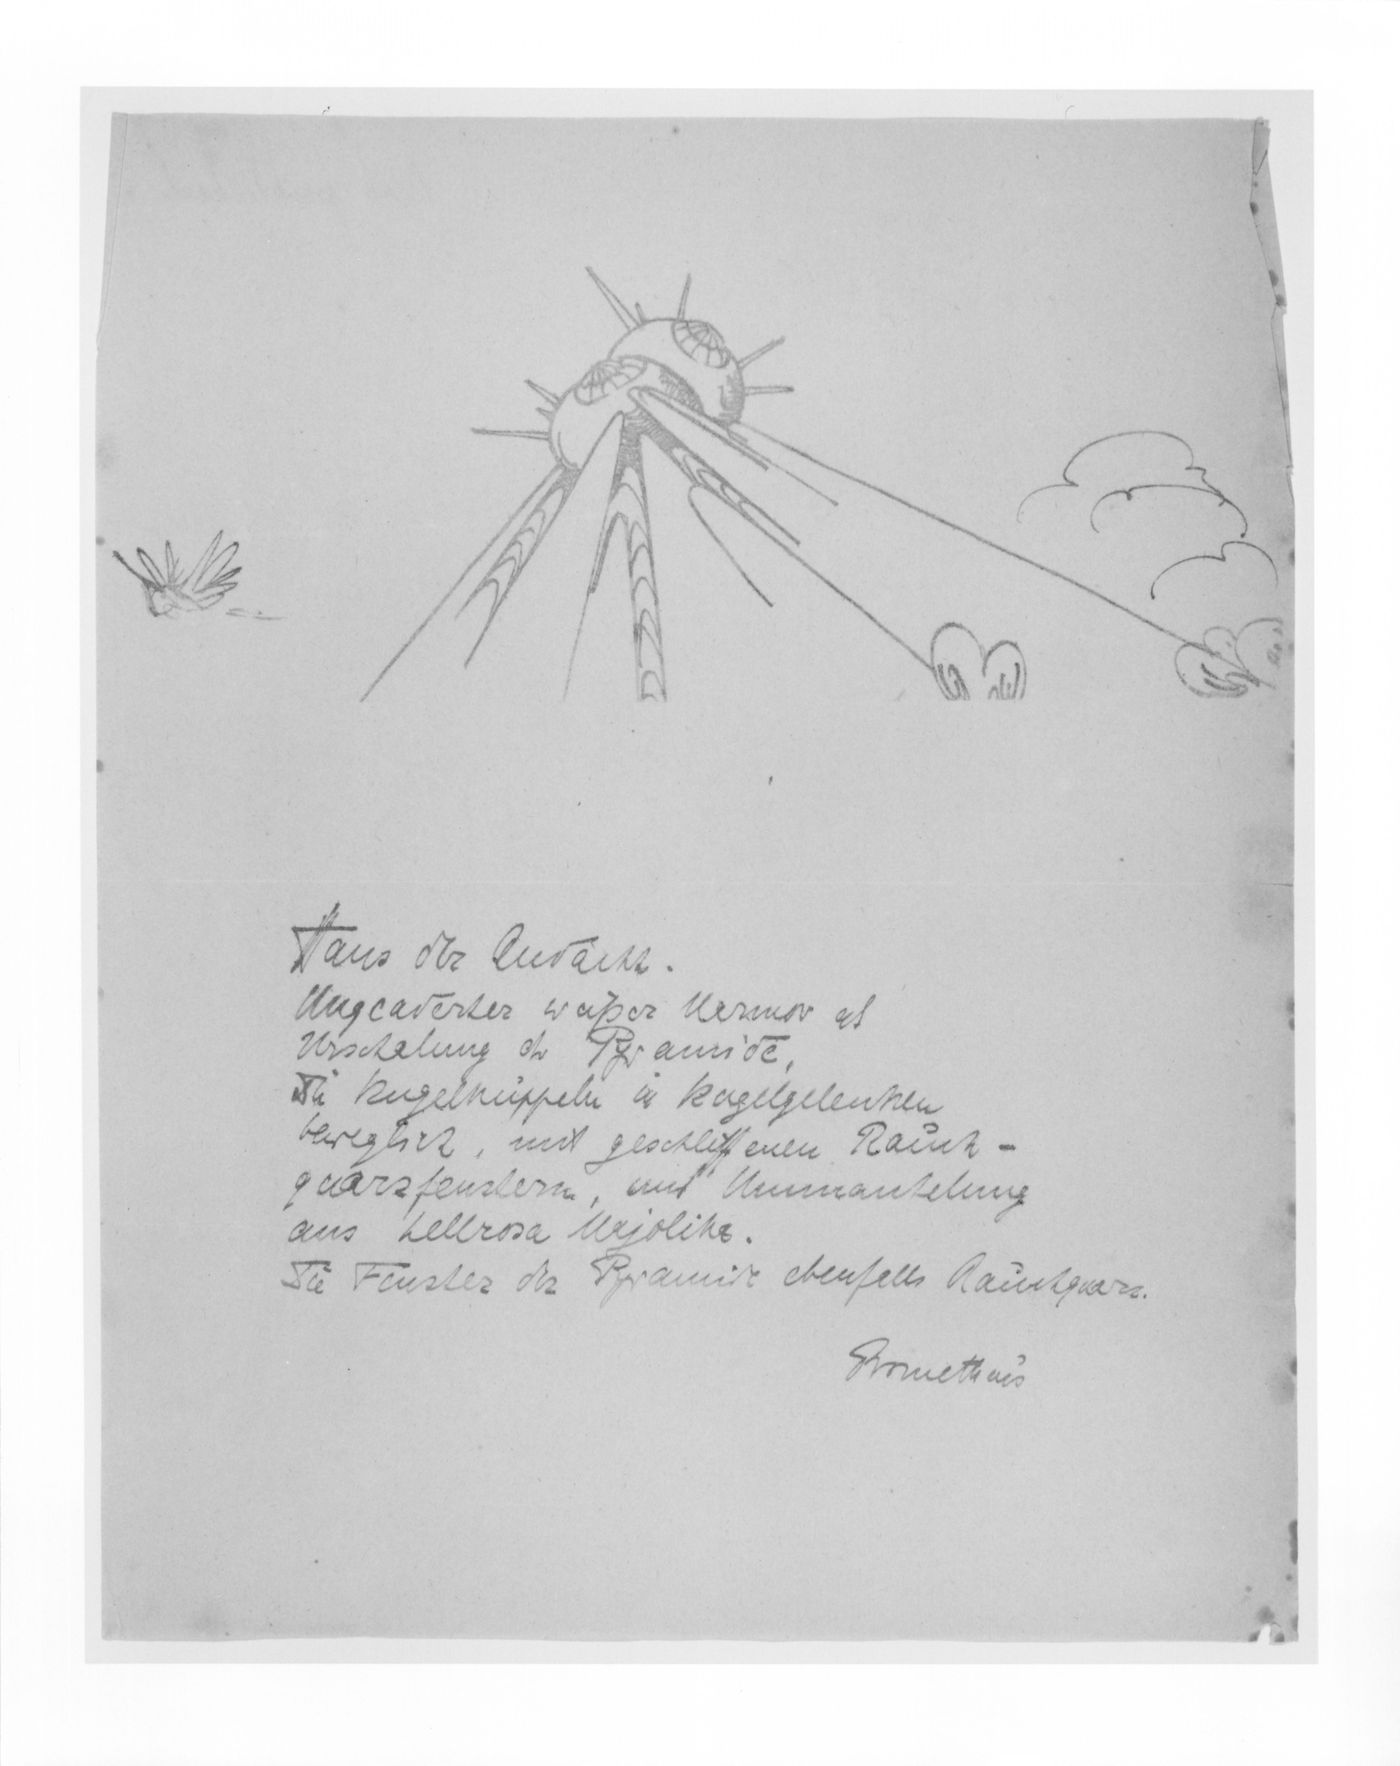 Haus der Andacht.
Ungeaderter weißer Marmor als
Verschalung der Pyramide,
Die Kugelkuppeln in Kugelgelenken
beweglich, mit geschliffenen Rauch-
quarzfenstern, und Ummantelung
aus hellrosa Majolika.
Die Fenster der Pyramide ebenfalls Rauchquarz.
Prometheus